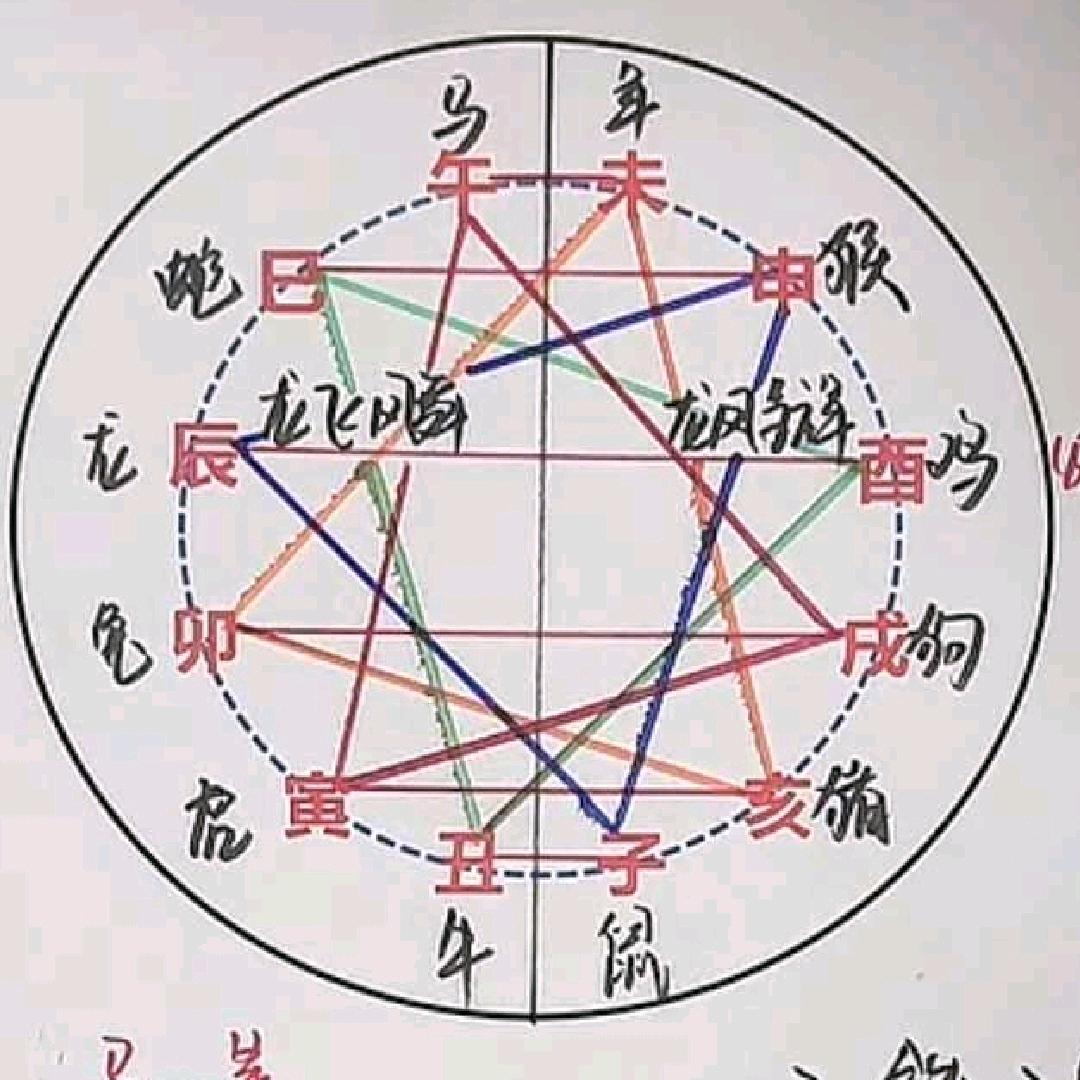 马 羊
午 未
蛇 巳 申 猴
龙飞 龙凤呈祥
龙 辰 酉 鸡
兔 卯 戌 狗
虎 寅 亥 猪
丑 子
牛 鼠